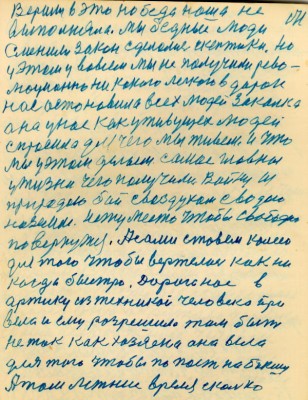 Верили в это победа наша не
выполняла. Мы бедные люди
сменили закон сделали скептики, но
у этом у совсем мы не получили рево-
люционно никакого легкого в дороги
нас остановила всех людей закалка
а на у нас как у живущих людей
для чего мы живем и что
мы у этом делаем самое главны
у жизни чего получили войну из
природою бой своздухом с водою
на земли. нету место чтобы свободно
повернутся. А сами ставем колесо
для того чтобы вертелась как ни
когда быстро. Дорога нас в
арктику из техникой человека при
вела и ему разрешила там быть
не так как хозяина она вела
для того чтобы попост на
А там летние время сколко